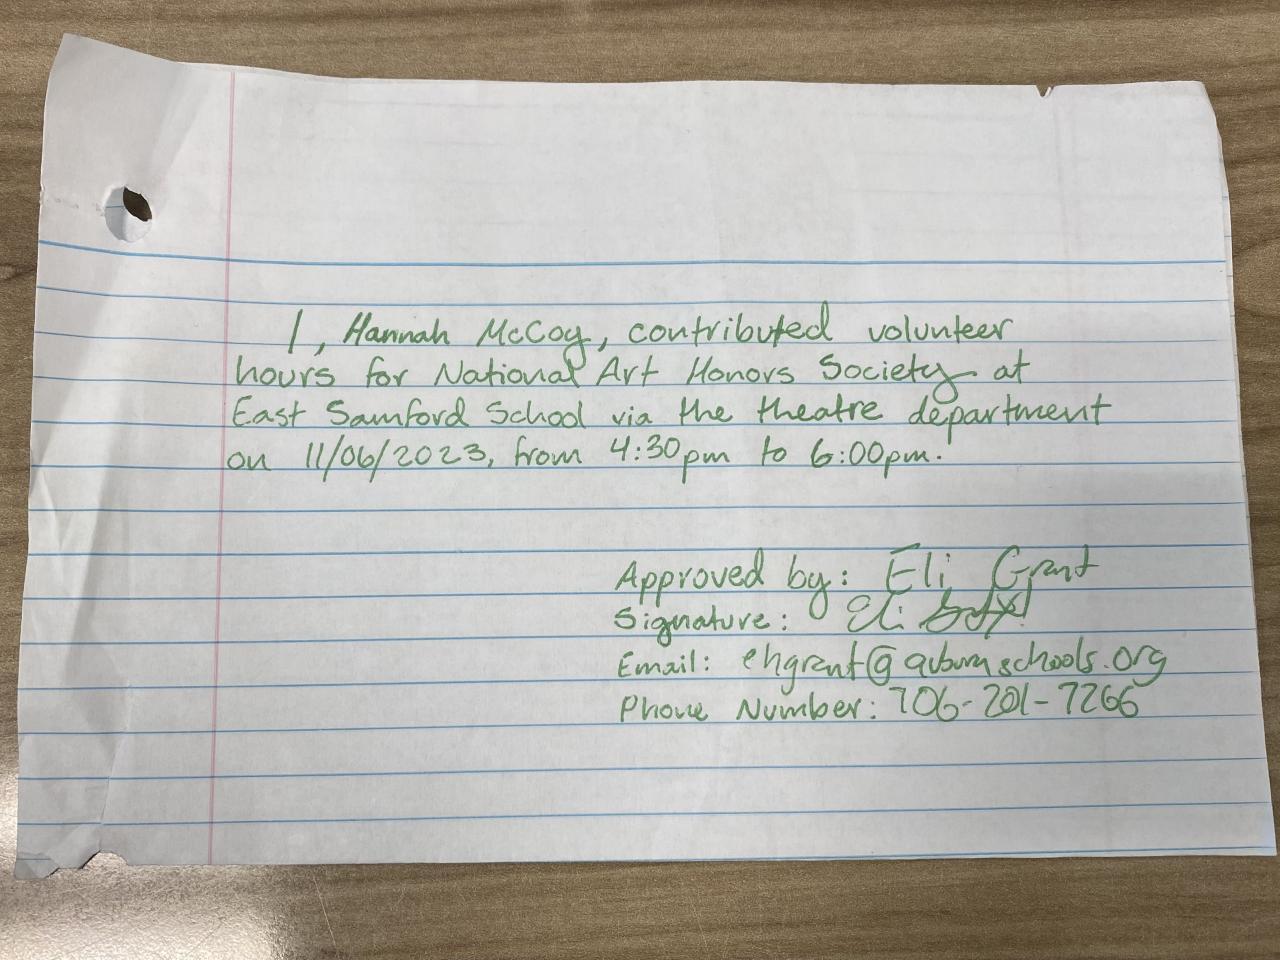 I, Hannah McCoy, contributed volunteer
hours for National Art Honors Society at
East Samford School via the theatre department
on 11/06/2023, from 4:30pm to 6:00pm.
Approved by: Eli Grant
Signature: Eli
Email: ehgrant@auburnschools.org
Phone Number: 706-201-7266